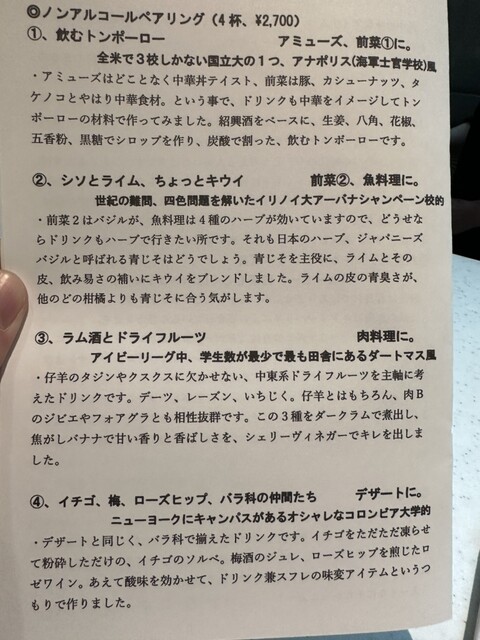 ◎ノンアルコールペアリング（4杯、¥2,700）
①、飲むトンポーロー　　アミューズ、前菜①に。
全米で３校しかない国立大の１つ、アナポリス(海軍士官学校)風
・アミューズはどことなく中華丼テイスト、前菜は豚、カシューナッツ、タ
ケノコとやはり中華食材。という事で、ドリンクも中華をイメージしてトン
ポーローの材料で作ってみました。紹興酒をベースに、生姜、八角、花椒、
五香粉、黒糖でシロップを作り、炭酸で割った、飲むトンポーローです。
②、シソとライム、ちょっとキウイ　　前菜②、魚料理に。
世紀の難問、四色問題を解いたイリノイ大アーバナシャンペーン校的
・前菜２はバジルが、魚料理は４種のハーブが効いていますので、どうせな
らドリンクもハーブで行きたい所です。それも日本のハーブ、ジャパニーズ
バジルと呼ばれる青じそはどうでしょう。青じそを主役に、ライムとその
皮、飲み易さの補いにキウイをブレンドしました。ライムの皮の青臭さが、
他のどの柑橘よりも青じそに合う気がします。
③、ラム酒とドライフルーツ　　肉料理に。
アイビーリーグ中、学生数が最少で最も田舎にあるダートマス風
・仔羊のタジンやクスクスに欠かせない、中東系ドライフルーツを主軸に考
えたドリンクです。デーツ、レーズン、いちじく。仔羊とはもちろん、肉Ｂ
のジビエやフォアグラとも相性抜群です。この３種をダークラムで煮出し、
焦がしバナナで甘い香りと香ばしさを、シェリーヴィネガーでキレを出しま
した。
④、イチゴ、梅、ローズヒップ、バラ科の仲間たち　　デザートに。
ニューヨークにキャンパスがあるオシャレなコロンビア大学的
・デザートと同じく、バラ科で揃えたドリンクです。イチゴをただただ凍らせ
て粉砕しただけの、イチゴのソルベ。梅酒のジュレ、ローズヒップを煎じたロ
ゼワイン。あえて酸味を効かせて、ドリンク兼スフレの味変アイテムというつ
もりで作りました。